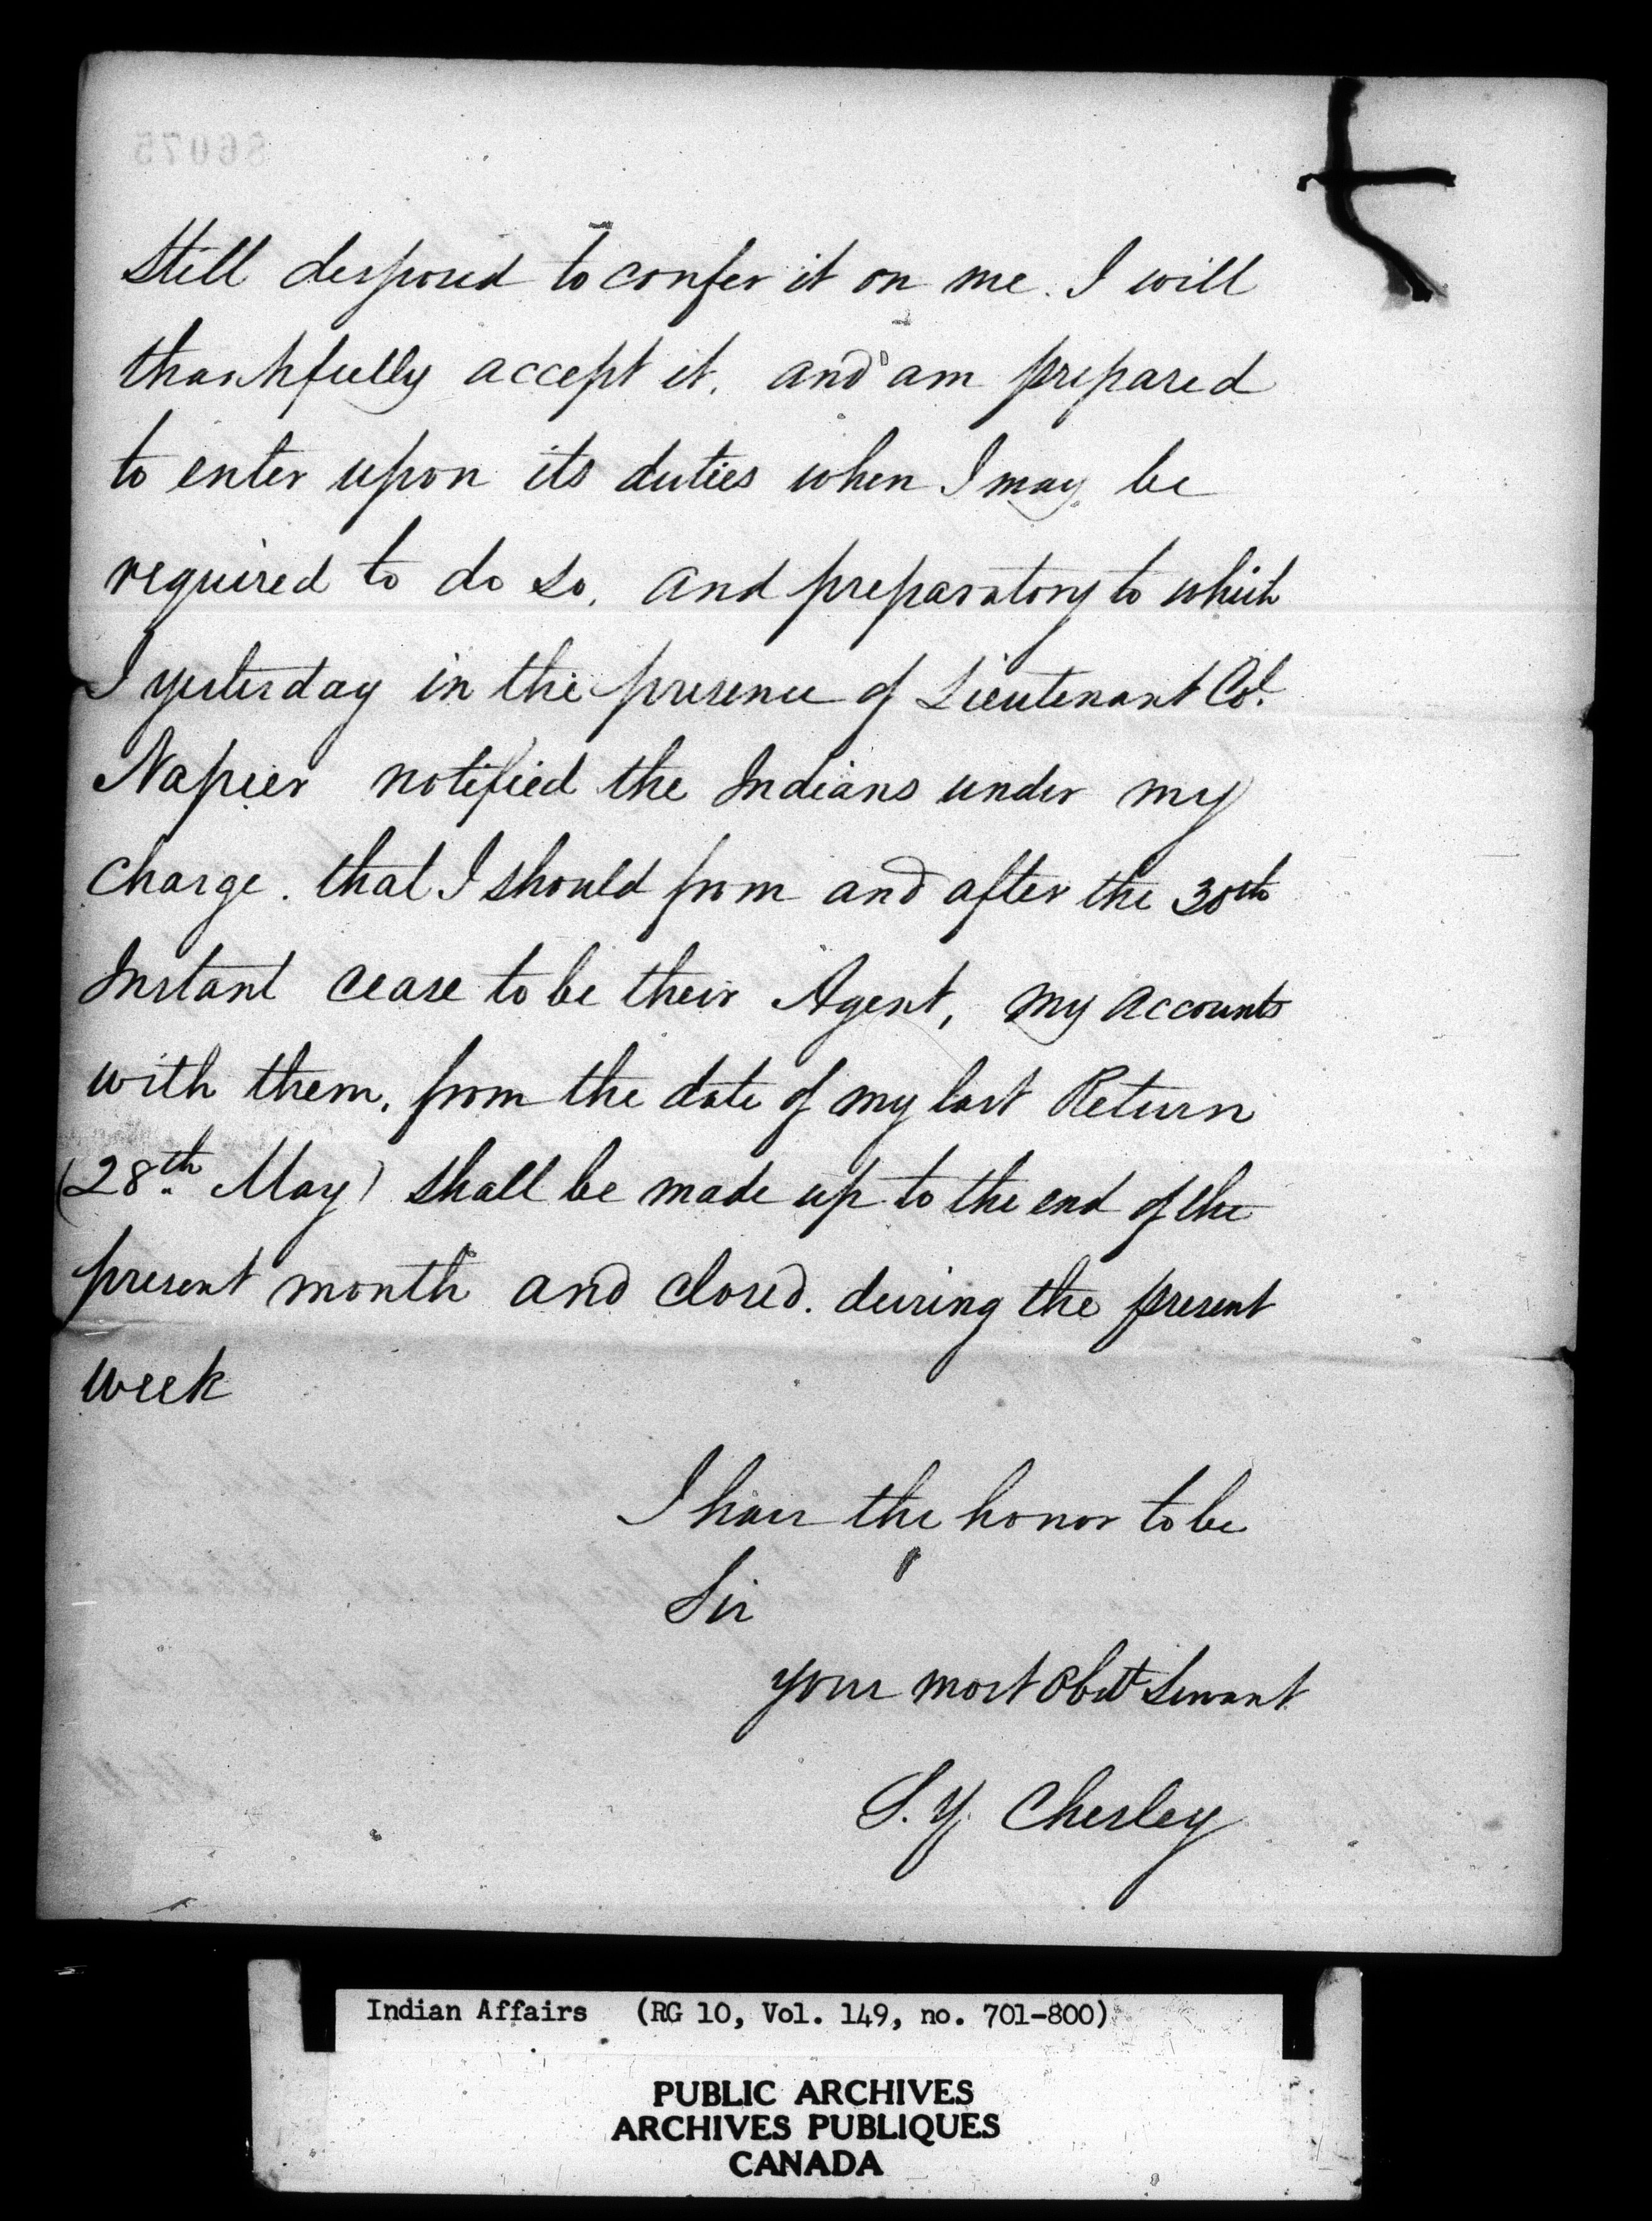 86075
still desposed to confer it on me. I will
thankfully accept it, and am prepared
to enter upon its duties when I may be
required to do so, and preparatory to which
I yesterday in the presence of Lieutenant Col.
Napier notified the Indians under my
charge. that I should from and after the 30th
Instant cease to be their Agent, my accounts
with them, from the date of my last Return
(28th May) shall be made up to the end of the
present month and closed. during the present
week
I have the honor to be
Sir
your most Obdt Servant
S. Y. Chesley
Indian Affairs (RG 10, Vol. 149, no. 701-800)
PUBLIC ARCHIVES
ARCHIVES PUBLIQUES
CANADA